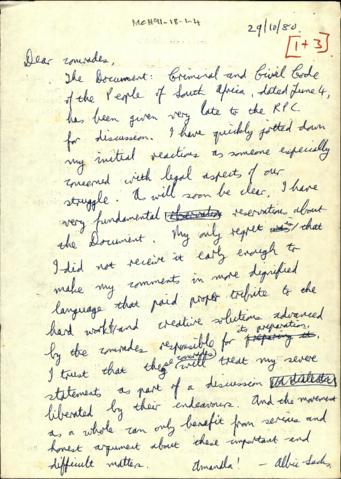 MCH91-18-1-4
29/10/80
[1+3]
Dear comrades,
The Document: Criminal and Civil Code
of the People of South Africa, dated June 4,
has been given very late to the RPC
for discussion. I have quickly jotted down
my initial reactions as someone especially
concerned with legal aspects of our
struggle. It will soon be clear, I have
very fundamental reservations about
the Document. My only regret that
I did not receive it early enough to
make my comments in more dignified
language that paid proper tribute to the
hard work and creative solutions advanced
by the comrades responsible for its preparation.
I trust that these comrades will treat my severe
statements as part of a discussion
liberated by their endeavours. And the movement
as a whole can only benefit from serious and
honest argument about these important and
difficult matters. Amandla! - Albie Sachs